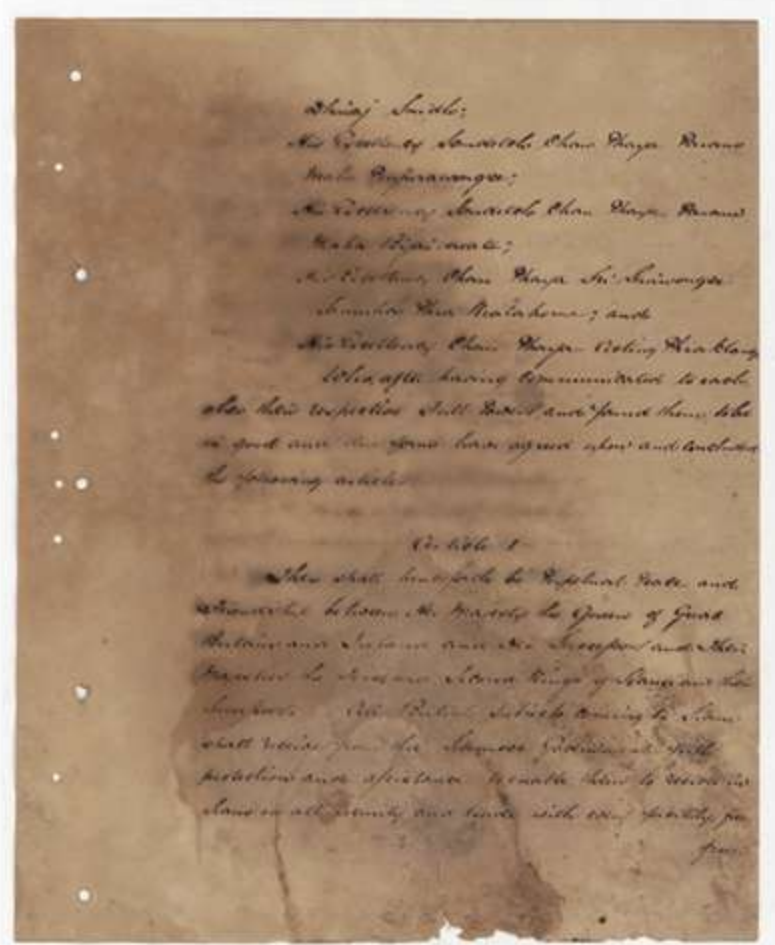 Dhiraj Snidh;
His Excellency Somdetch Chau Phaya Param
Maha Puyurawongse;
His Excellency Somdetch Chau Phaya Param
Maha Bijai-neate;
His Excellency Chau Phaya Sri Suriwongse
Samuha Phra Kralahome; and
His Excellency Chau Phaya Acting Phra-Klang
Who, after having communicated to each
other their respective Full Powers and found them to be
in good and due form have agreed upon and concluded
the following articles
Article 1
There shall henceforth be Perpetual Peace and
Friendship between Her Majesty the Queen of Great
Britain and Ireland and Her Successors and Their
Majesties the First and Second Kings of Siam and their
Successors. All British Subjects coming to Siam
shall receive from the Siamese Government full
protection and assistance to enable them to reside in
Siam in all security and trade with every facility free
from